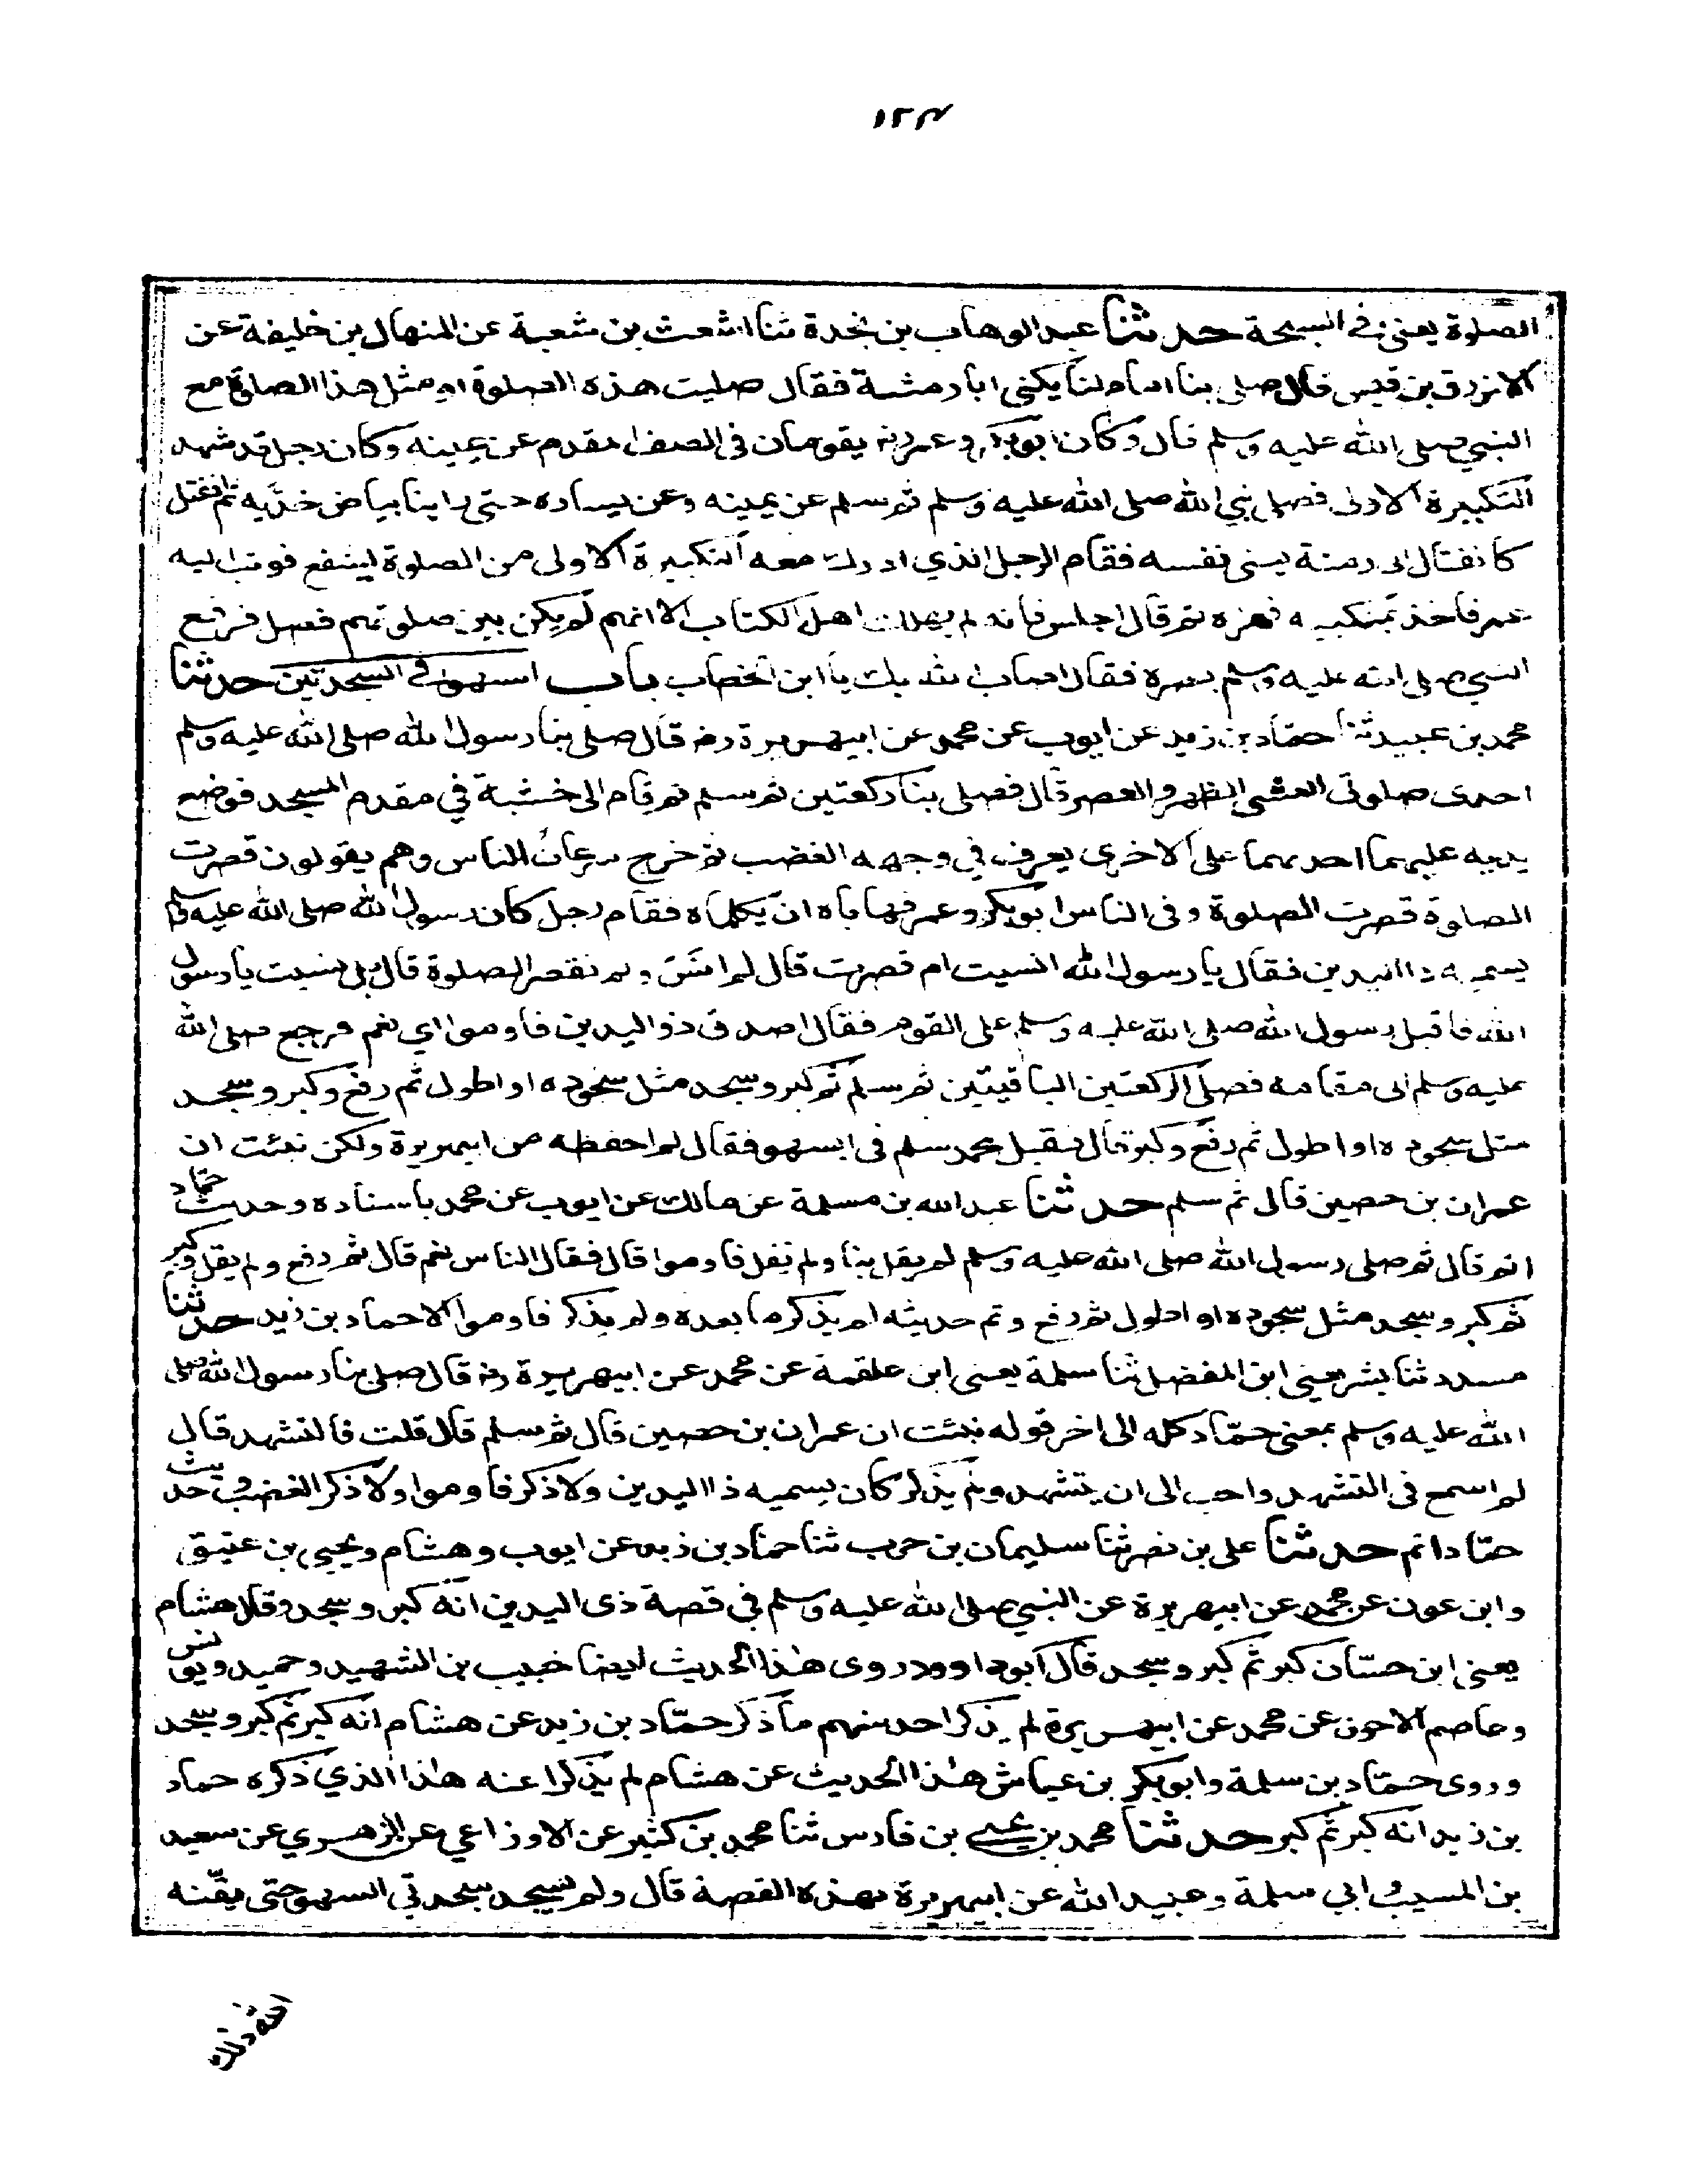 ١٢٣
الصلوة يعني في السبحة حدثنا عبد الوهاب بن نجدة ثنا اشعث بن شعبة عن المنهال بن خليفة عن
الازرق بن قيس قال صلى بنا امام لنا يكنى ابا رمثة فقال صليت هذه الصلوة او مثل هذا الصلوة مع
النبي صلى الله عليه وسلم قال وكان ابو بكر وعمر رض يقومان في الصف المقدم عن يمينه وكان رجل قد شهد
التكبيرة الاولى فصلى نبي الله صلى الله عليه وسلم ثم سلم عن يمينه وعن يساره حتى راينا بياض خديه ثم انفتل
كانفتال ابي رمثة يعني نفسه فقام الرجل الذي ادرك معه التكبيرة الاولى من الصلوة ليشفع فوثب اليه
عمر فاخذ بمنكبيه فهزه ثم قال اجلس فانه لم يهلك اهل الكتاب الا انهم لم يكن بين صلوتهم فصل فرفع
النبي صلى الله عليه وسلم بصره فقال اصاب الله بك يا ابن الخطاب باب السهو في السجدتين حدثنا
محمد بن عبيد ثنا حماد بن زيد عن ايوب عن محمد عن ابيهريرة رض قال صلى بنا رسول الله صلى الله عليه وسلم
احدى صلوتي العشي الظهر والعصر قال فصلى بنا ركعتين ثم سلم ثم قام الى خشبة في مقدم المسجد فوضع
يديه عليهما احدىهما على الاخرى يعرف في وجهه الغضب ثم خرج سرعان الناس وهم يقولون قصرت
الصلوة قصرت الصلوة وفي الناس ابو بكر وعمر فهاباه ان يكلماه فقام رجل كان رسول الله صلى الله عليه وسلم
يسميه ذا اليدين فقال يا رسول الله انسيت ام قصرت قال لم انس ولم تقصر الصلوة قال بل نسيت يا رسول
الله فاقبل رسول الله صلى الله عليه وسلم على القوم فقال اصدق ذو اليدين فاوموا اي نعم فرجع صلى الله
عليه وسلم الى مقامه فصلى الركعتين الباقيتين ثم سلم ثم كبر وسجد مثل سجوده او اطول ثم رفع وكبر وسجد
مثل سجوده او اطول ثم رفع وكبر قال فقيل لمحمد سلم في السهو فقال لم احفظه من ابيهريرة ولكن نبئت ان
عمران بن حصين قال ثم سلم حدثنا عبد الله بن مسلمة عن مالك عن ايوب عن محمد باسناده وحديث حماد
اتم قال ثم صلى رسول الله صلى الله عليه وسلم لم يقل بنا ولم يقل فاوموا قال فقال الناس نعم قال ثم رفع ولم يقل وكبر
ثم كبر وسجد مثل سجوده او اطول ثم رفع وتم حديثه لم يذكر ما بعده ولم يذكر فاوموا الا حماد بن زيد حدثنا
مسدد ثنا بشر يعني ابن المفضل ثنا سلمة يعني ابن علقمة عن محمد عن ابيهريرة رض قال صلى بنا رسول الله صلى
الله عليه وسلم بمعنى حماد كله الى اخر قوله نبئت ان عمران بن حصين قال ثم سلم قال قلت فالتشهد قال
لم اسمع في التشهد واحب الى ان يتشهد ولم يذكر كان يسميه ذا اليدين ولا ذكر فاوموا ولا ذكر الغضب وحديث
حماد اتم حدثنا علي بن نصر ثنا سليمان بن حرب ثنا حماد بن زيد عن ايوب وهشام ويحيى بن عتيق
وابن عون عن محمد عن ابيهريرة عن النبي صلى الله عليه وسلم في قصة ذي اليدين انه كبر وسجد وقال هشام
يعني ابن حسان كبر ثم كبر وسجد قال ابو داوود روى هذا الحديث ايضا حبيب بن الشهيد وحميد ويونس
وعاصم الاحول عن محمد عن ابيهريرة لم يذكر احد منهم ما ذكر حماد بن زيد عن هشام انه كبر ثم كبر وسجد
وروى حماد بن سلمة وابو بكر بن عياش هذا الحديث عن هشام لم يذكرا عنه هذا الذي ذكره حماد
بن زيد انه كبر ثم كبر حدثنا محمد بن يحيى بن فارس ثنا محمد بن كثير عن الاوزاعي عن الزهري عن سعيد
بن المسيب وابي سلمة وعبيد الله عن ابيهريرة بهذه القصة قال ولم يسجد سجدتي السهو حتى يقنه
الله ذلك